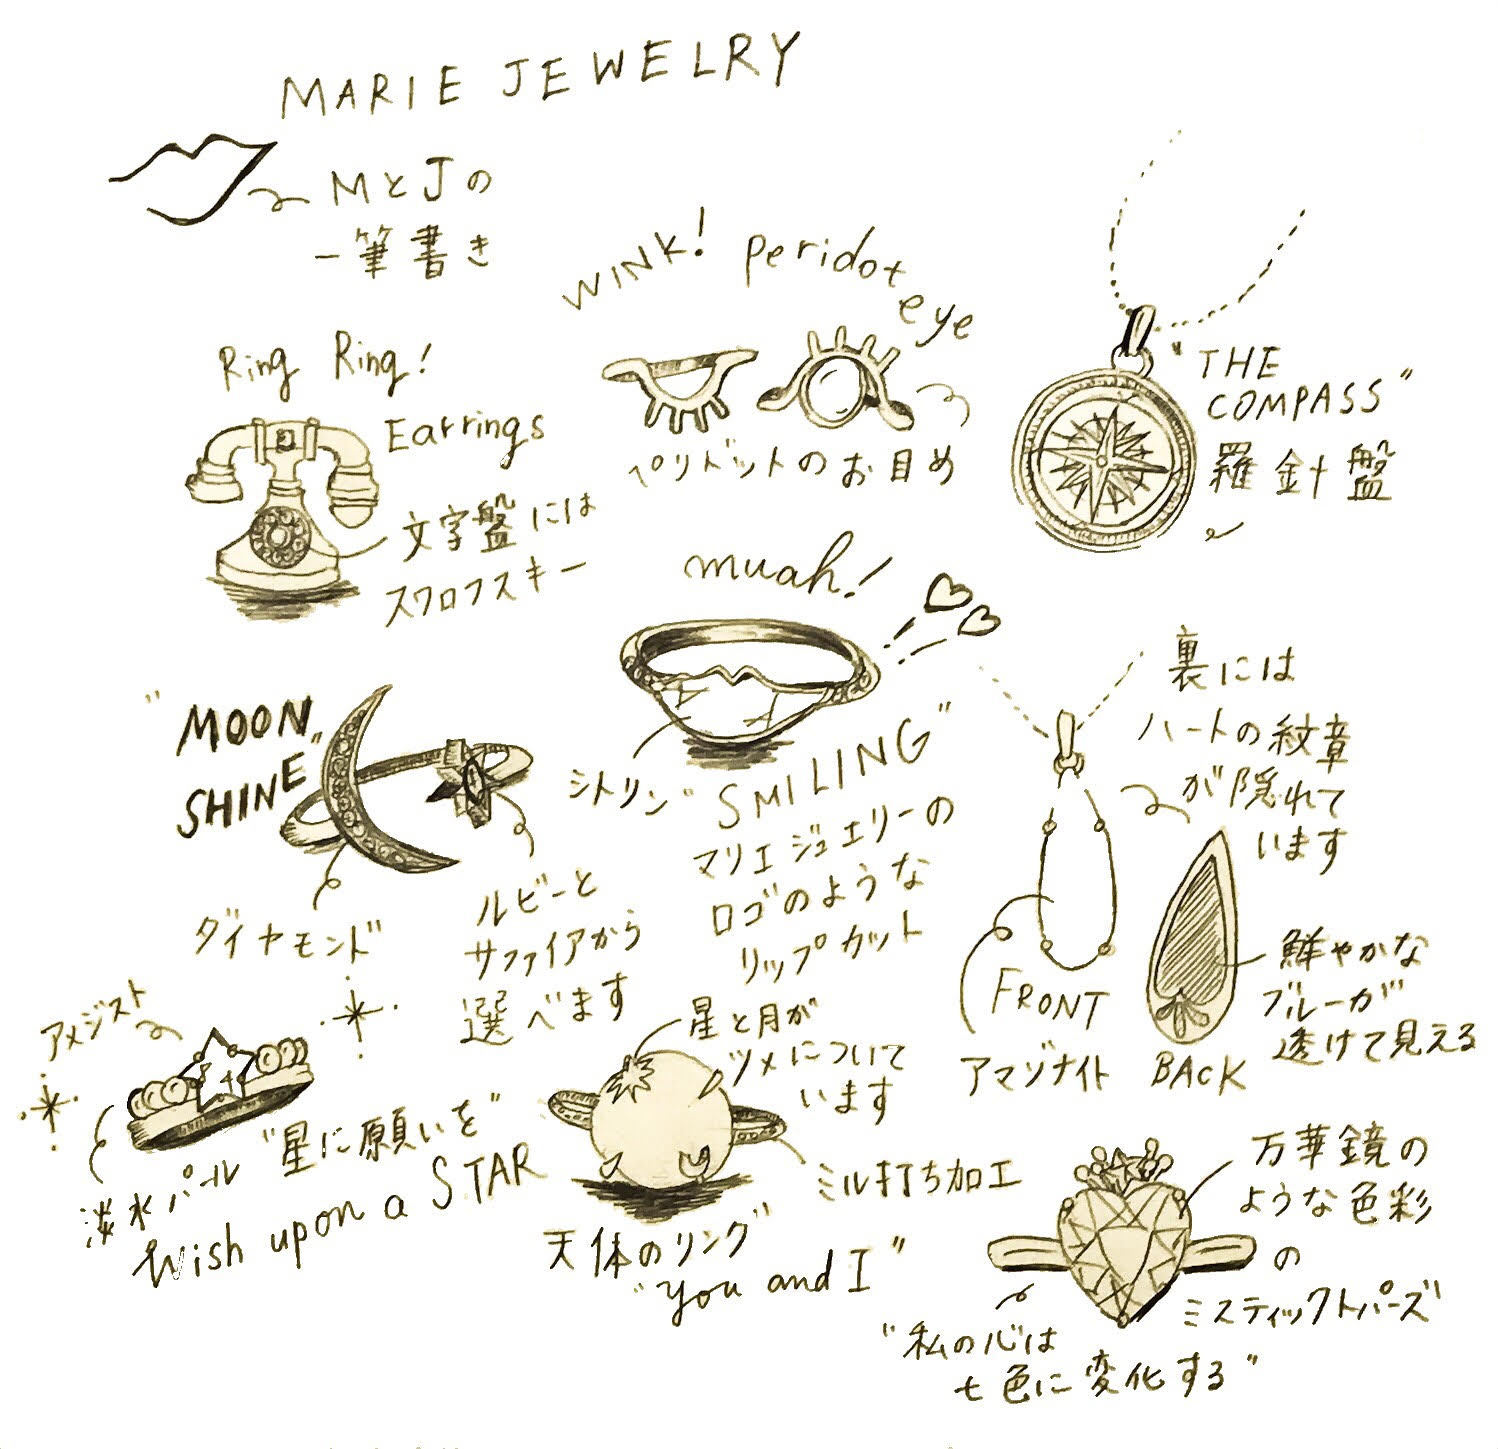 MARIE JEWELRY
MとJの
一筆書き
WINK! peridot eye
ペリドットのお目め
"THE
COMPASS"
羅針盤
Ring Ring!
Earrings
文字盤には
スワロフスキー
muah!
シトリン
"SMILING"
マリエジュエリーの
ロゴのような
リップカット
"MOON
SHINE"
ダイヤモンド
ルビーと
サファイアから
選べます
裏には
ハートの紋章
が隠れて
います
FRONT
アマゾナイト
BACK
鮮やかな
ブルーが
透けて見える
アメジスト
淡水パール
"星に願いを"
Wish upon a STAR
星と月が
ツメについて
います
ミル打ち加工
天体のリング
"You and I"
万華鏡の
ような色彩
の
ミスティックトパーズ
"私の心は
七色に変化する"